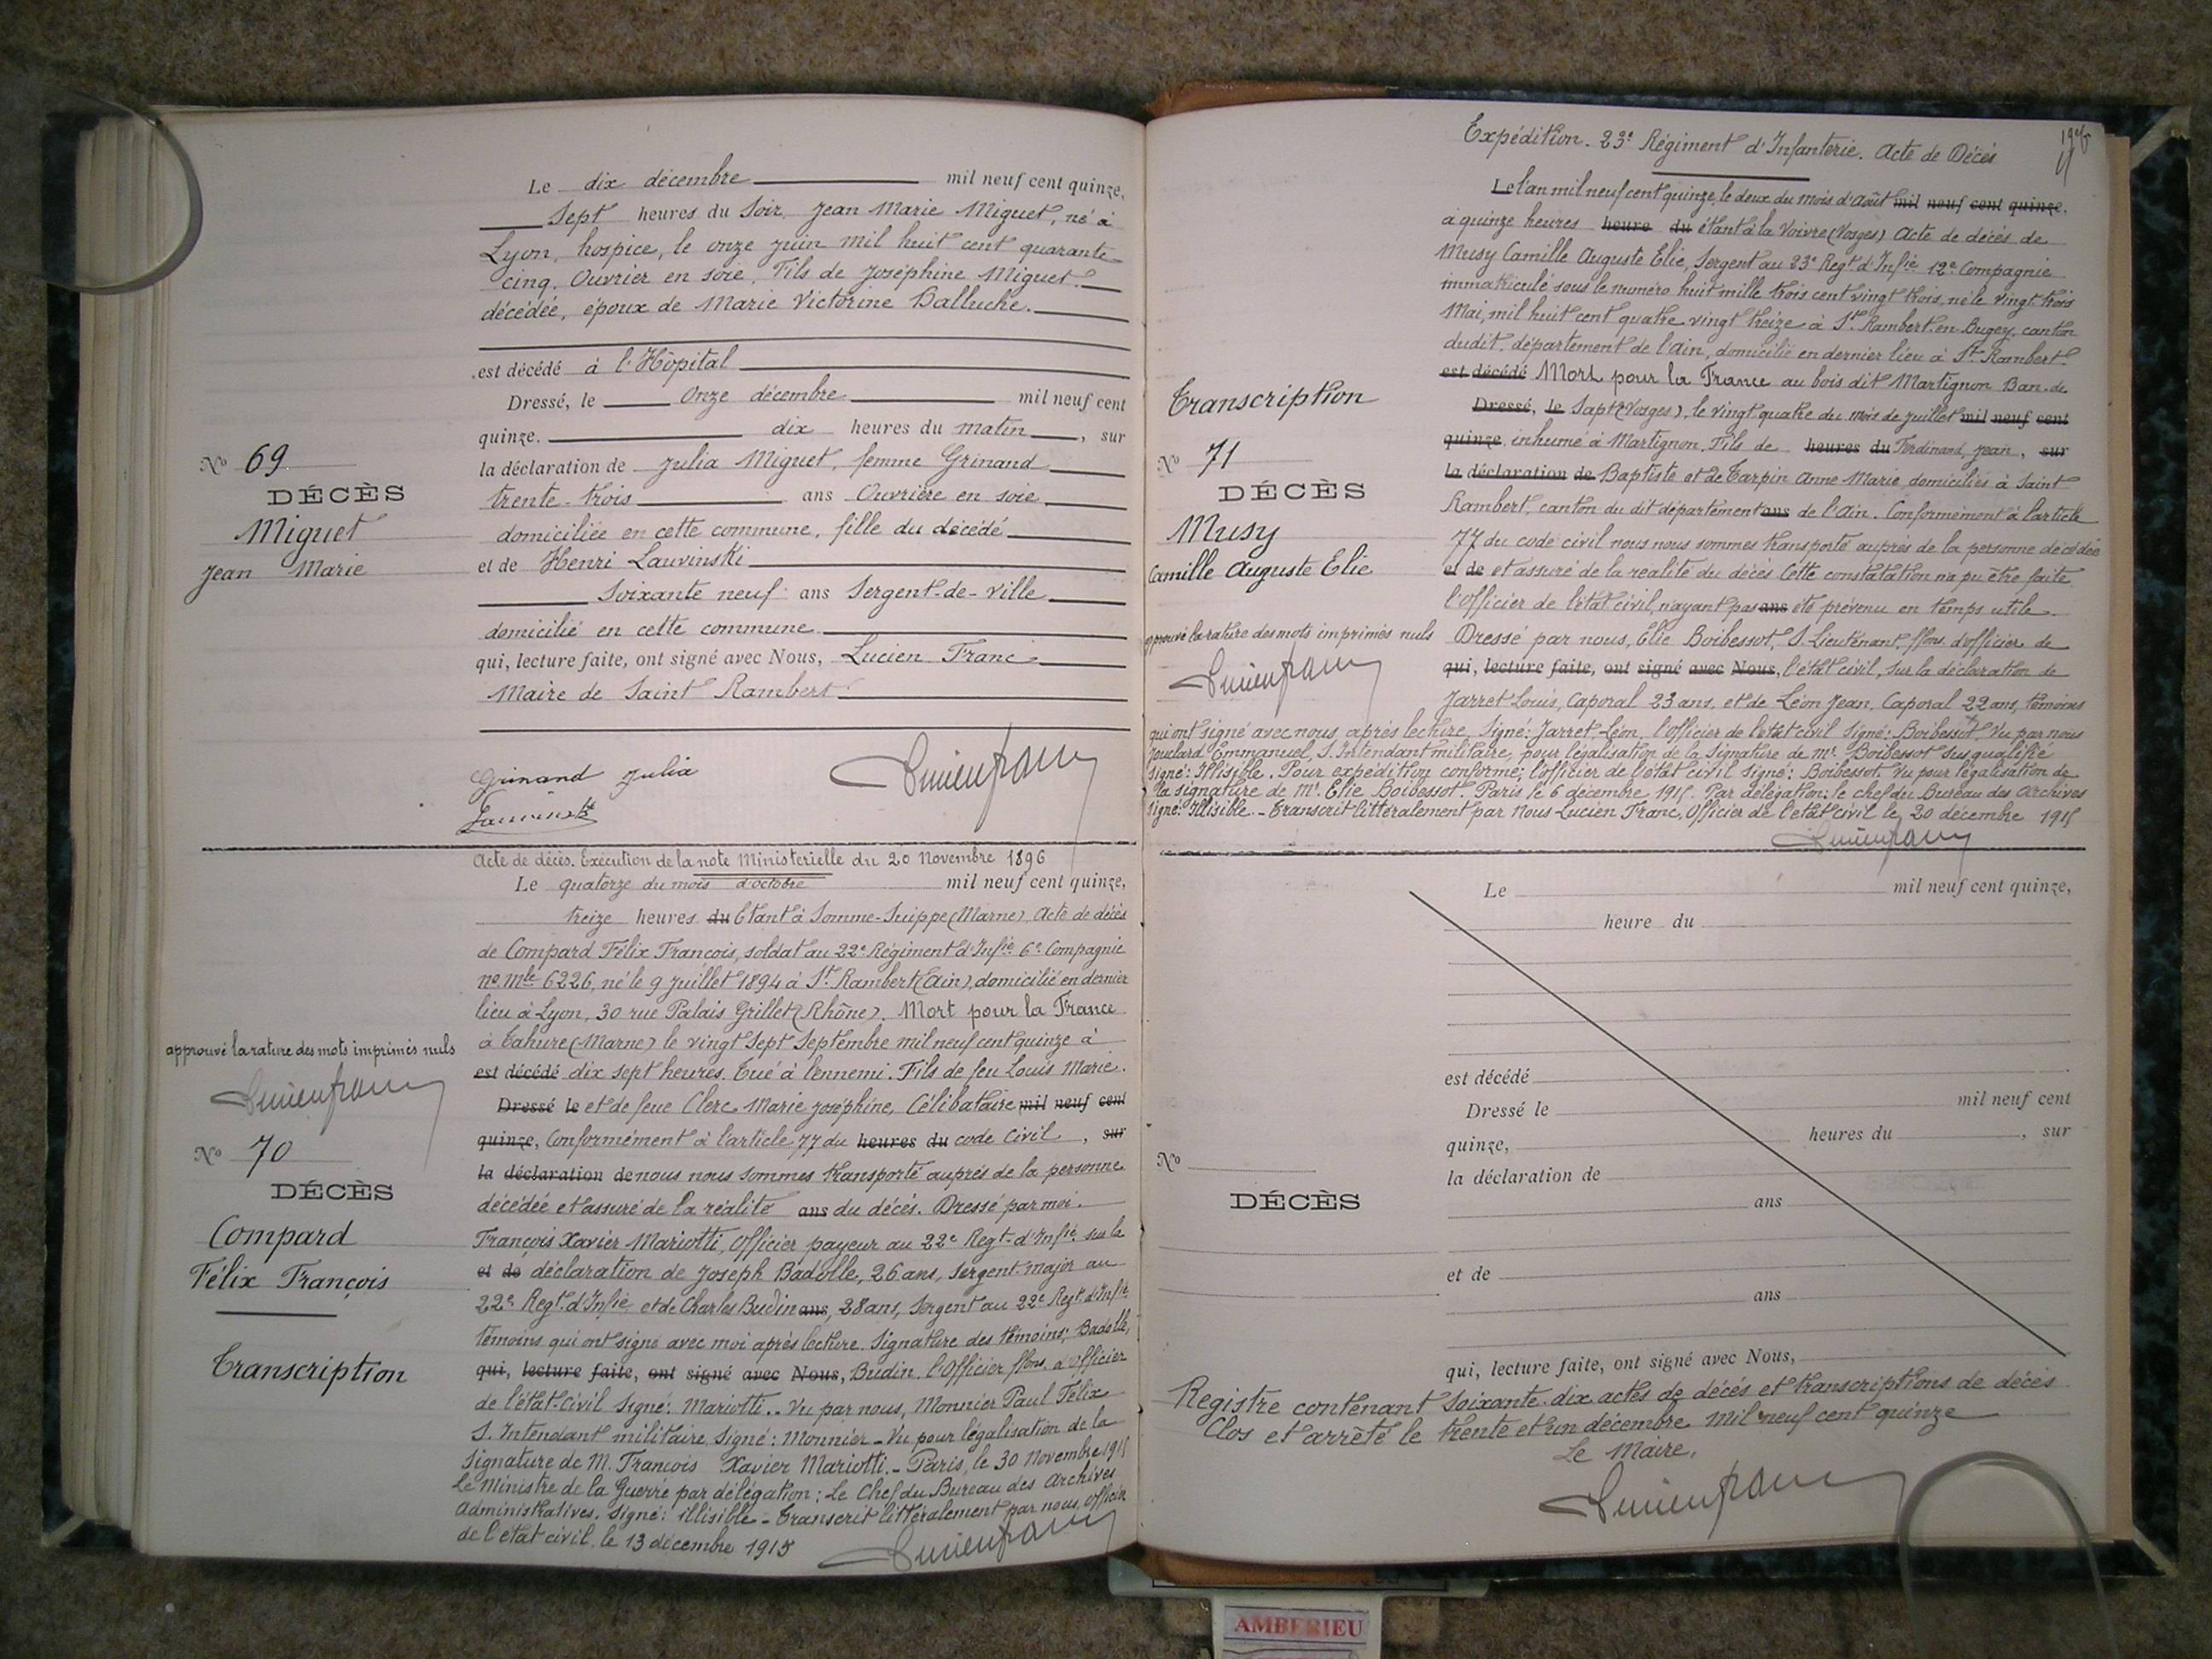 Le dix décembre mil neuf cent quinze,
Sept heures du Soir, Jean Marie Miguet, né à
Lyon, hospice, le onze juin mil huit cent quarante
cinq. Ouvrier en soie, Fils de Joséphine Miguet
décédée, époux de Marie Victorine Balluche.
est décédé à l'Hôpital
Dressé, le Onze décembre mil neuf cent
quinze. dix heures du matin, sur
la déclaration de Julia Miguet, femme Grinand
trente-trois ans Ouvrière en soie
domiciliée en cette commune, fille du décédé
et de Henri Lauvinski
Soixante neuf ans Sergent-de-ville
domicilié en cette commune
qui, lecture faite, ont signé avec Nous, Lucien Franc
Maire de Saint Rambert.
Grinand Julia
Lauvinski
Lucien franc
No 69
DÉCÈS
Miguet
Jean Marie
Acte de décès. Exécution de la note Ministérielle du 20 Novembre 1896
Le quatorze du mois d'octobre mil neuf cent quinze,
treize heures du Etant à Somme-Suippe (Marne), Acte de décès
de Compard Félix François, soldat au 22e Régiment d'Infie 6e Compagnie
no mle 6226, né le 9 juillet 1894 à St Rambert (Ain), domicilié en dernier
lieu à Lyon, 30 rue Palais Grillet (Rhône). Mort pour la France
à Tahure (Marne) le vingt sept Septembre mil neuf cent quinze à
est décédé dix sept heures. Tué à l'ennemi. Fils de feu Louis Marie.
Dressé le et de feue Clerc Marie Joséphine, Célibataire mil neuf cent
quinze, Conformément à l'article 77 du heures du code Civil, sur
la déclaration de nous nous sommes transporté auprès de la personne
décédée et assuré de la réalité ans du décès. Dressé par moi.
François Xavier Mariotti, Officier payeur au 22e Regt d'Infie sur la
et de déclaration de Joseph Badolle, 26 ans, Sergent-major au
22e Regt d'Infie et de Charles Budin ans, 28 ans, Sergent au 22e Regt d'Infie
témoins qui ont signé avec moi après lecture. Signature des témoins; Badolle,
qui, lecture faite, ont signé avec Nous, Budin. l'Officier ffons d'officier
de l'état-Civil Signé: Mariotti.. Vu par nous, Monnier Paul Félix
S. Intendant militaire, Signé: Monnier - Vu pour légalisation de la
Signature de M. François Xavier Mariotti. - Paris, le 30 Novembre 1915
Le Ministre de la Guerre par délégation; Le Chef du Bureau des Archives
Administratives. Signé: illisible - Transcrit littéralement par nous, Officier
de l'état civil, le 13 décembre 1915
Lucien franc
approuvé la rature des mots imprimés nuls
Lucien franc
No 70
DÉCÈS
Compard
Félix François
Transcription
Expédition. 23e Régiment d'Infanterie. Acte de Décès
Le l'an mil neuf cent quinze, le deux du mois d'Août mil neuf cent quinze,
à quinze heures heure du étant à la Voivre (Vosges) Acte de décès de
Musy Camille Auguste Elie, Sergent au 23e Regt d'Infie 12e Compagnie
immatriculé sous le numéro huit mille trois cent vingt trois, né le vingt trois
Mai, mil huit cent quatre vingt treize à St Rambert-en-Bugey, canton
dudit, département de l'Ain, domicilié en dernier lieu à St Rambert
est décédé Mort pour la France au bois dit Martignon Ban-de-
Dressé, le Sapt (Vosges), le vingt quatre du mois de juillet mil neuf cent
quinze inhumé à Martignon. Fils de heures du Ferdinand, Jean, sur
la déclaration de Baptiste et de Tarpin Anne Marie, domiciliés à Saint
Rambert, canton du dit département ans de l'Ain. Conformément à l'article
77 du code civil nous nous sommes transporté auprès de la personne décédée
et de et assuré de la réalité du décès Cette constatation n'a pu être faite
l'Officier de l'état civil, n'ayant pas ans été prévenu en temps utile.
Dressé par nous, Elie Boibessot, S. Lieutenant, ffons d'officier de
qui, lecture faite, ont signé avec Nous, l'état civil, sur la déclaration de
Jarret Louis, Caporal 23 ans, et de Léon Jean, Caporal 22 ans, témoins
qui ont signé avec nous après lecture. Signé: Jarret, Léon, l'officier de l'état civil Signé: Boibessot. Vu par nous
Jouclard Emmanuel, S. Intendant militaire, pour légalisation de la Signature de Mr. Boibessot susqualifié
Signé: Illisible. Pour expédition conforme; l'officier de l'état civil Signé: Boibessot. Vu pour légalisation de
la signature de Mr. Elie Boibessot. Paris le 6 décembre 1915. Par délégation: le chef du Bureau des Archives
Signé: Illisible. - Transcrit littéralement par Nous Lucien Franc, Officier de l'état civil le, 20 décembre 1915
Lucien franc
Transcription
No 71
DÉCÈS
Musy
Camille Auguste Elie
approuvé la rature des mots imprimés nuls
Lucien franc
Le mil neuf cent quinze,
heure du
est décédé
Dressé le mil neuf cent
quinze, heures du , sur
la déclaration de
ans
et de
ans
qui, lecture faite, ont signé avec Nous,
No
DÉCÈS
Registre contenant Soixante-dix actes de décès et transcriptions de décès
Clos et arrêté le trente et un décembre mil neuf cent quinze
Le Maire,
Lucien franc
AMBERIEU